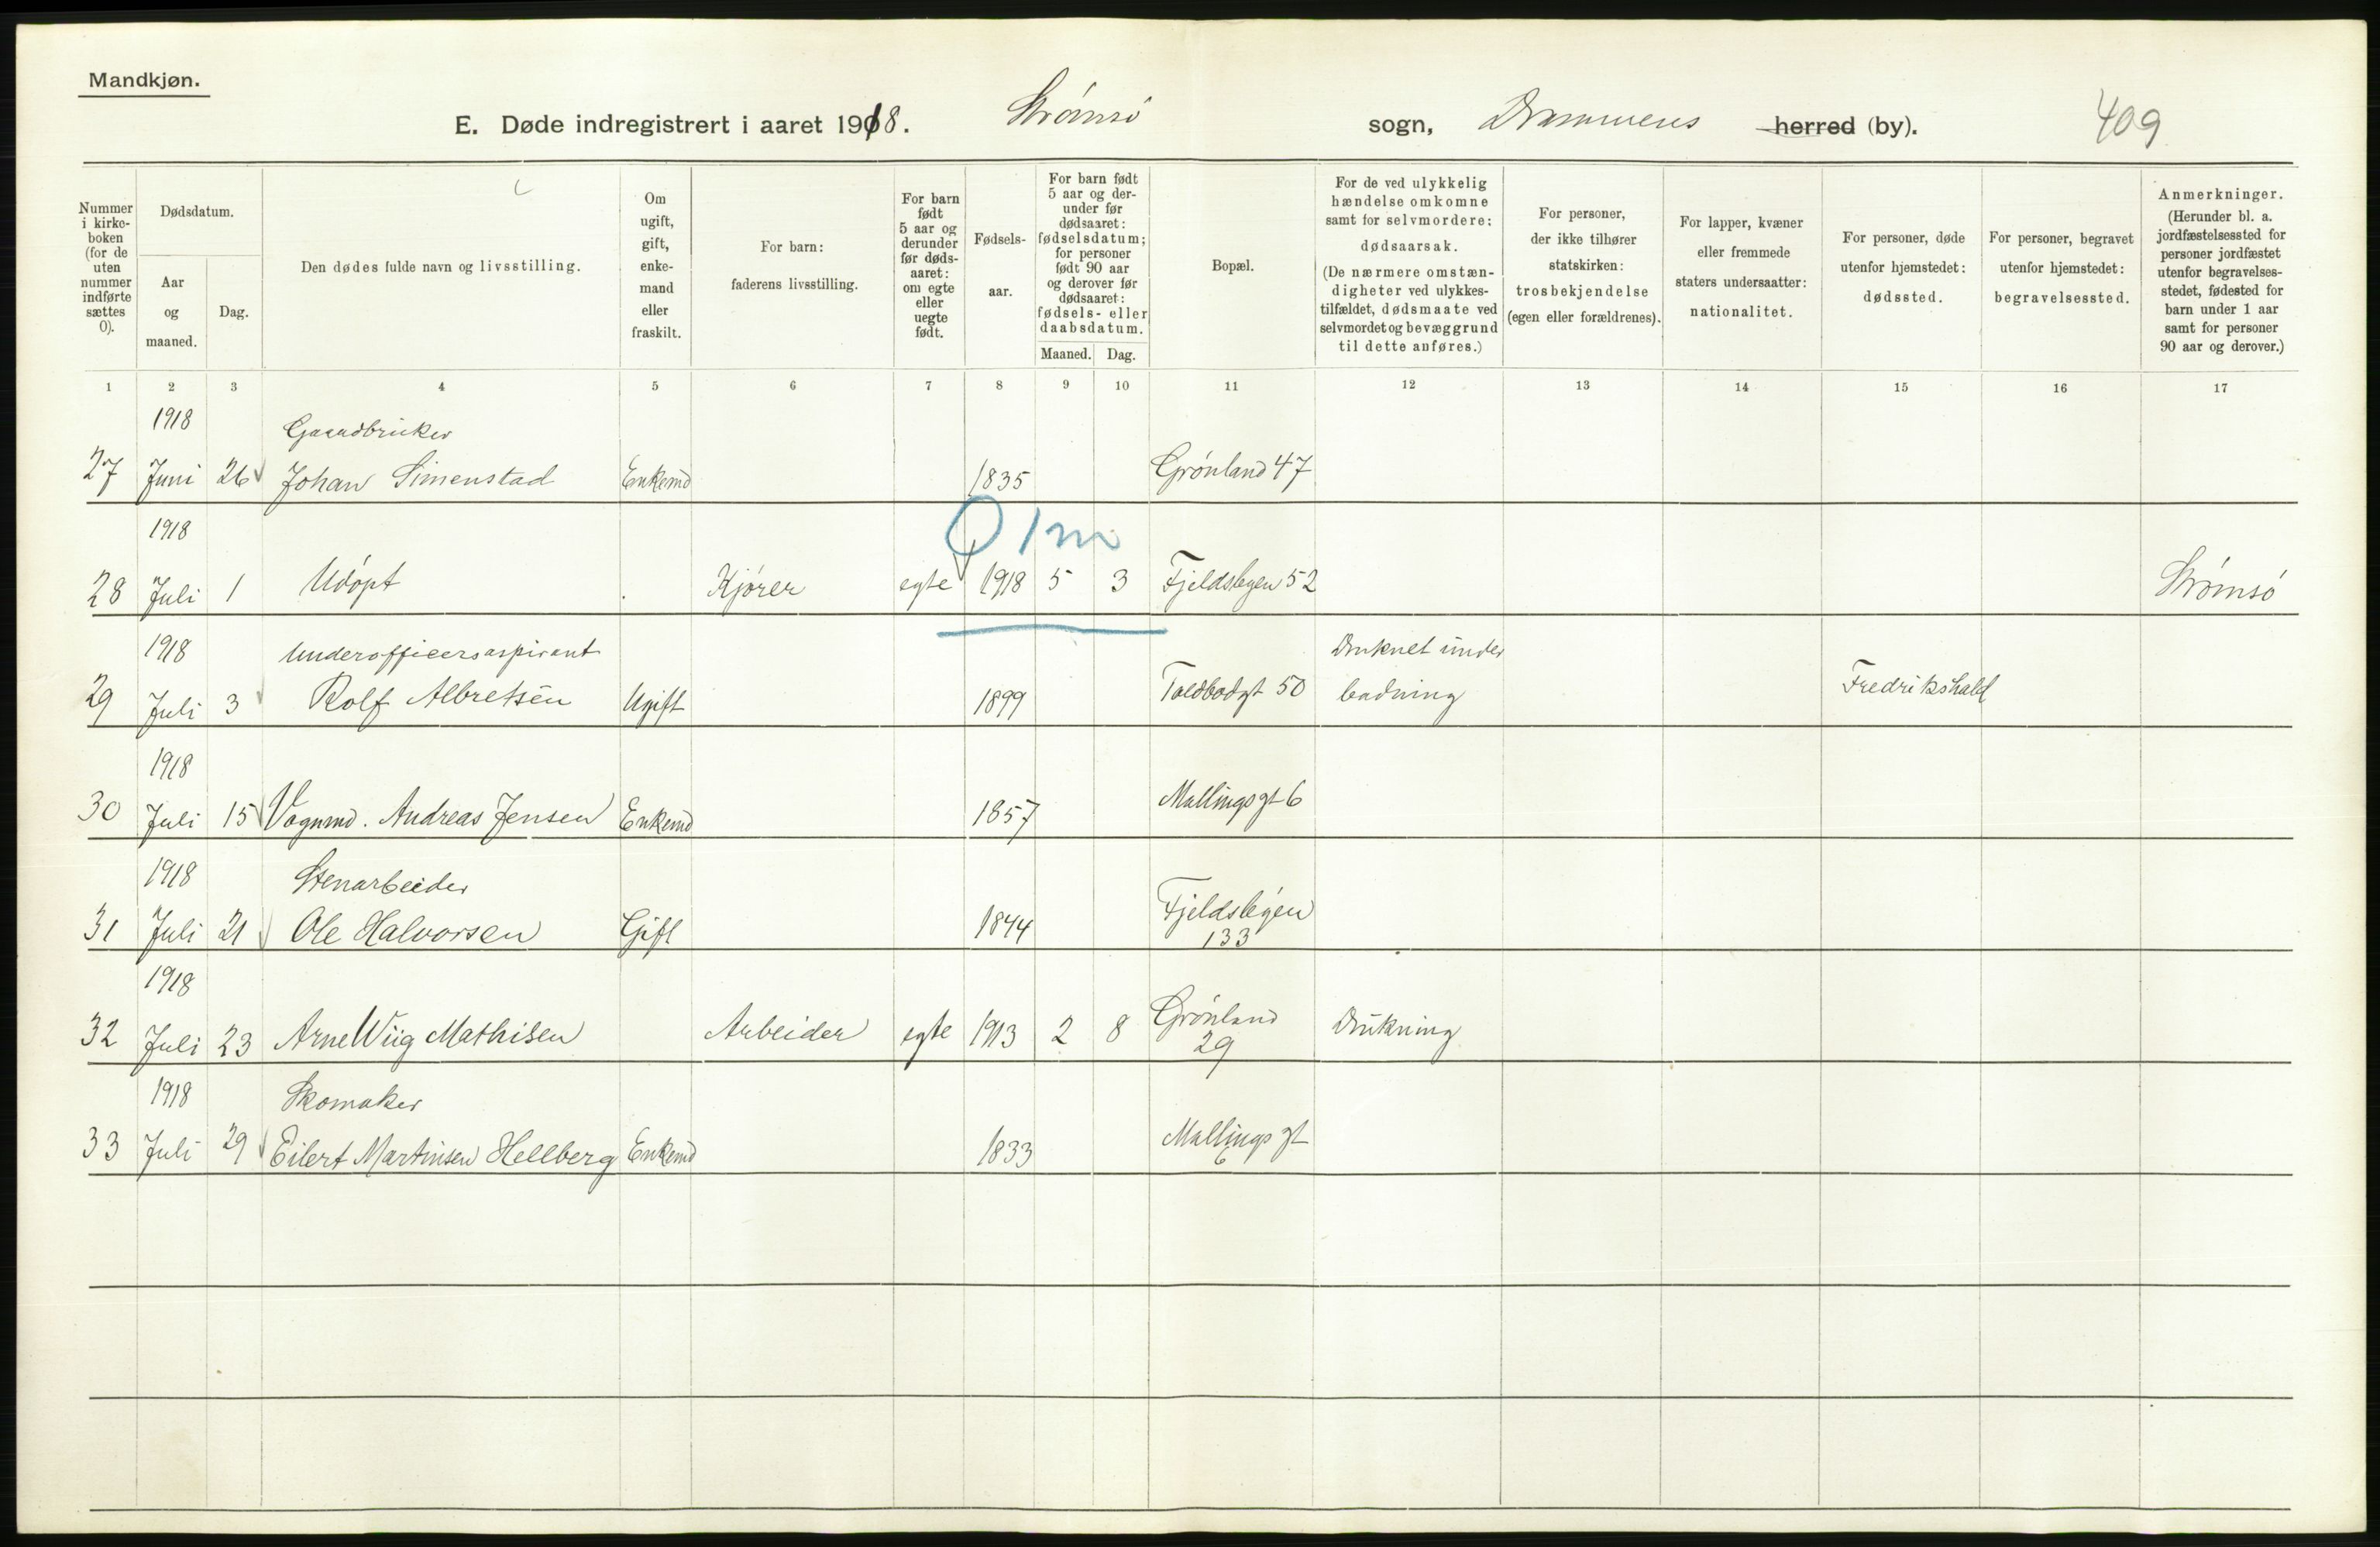 Mandkjøn.
E. Døde indregistrert i aaret 1918. Strømsø sogn, Drammens herred (by). 409
Nummer i kirke- boken (for de uten nummer indførte sættes 0).
Dødsdatum.
Aar og maaned.
Dag.
Den dødes fulde navn og livsstilling.
Om ugift, gift, enke- mand eller fraskilt.
For barn: faderens livsstilling.
For barn født 5 aar og derunder før døds- aaret: om egte eller uegte født.
Fødsels- aar.
For barn født 5 aar og der- under før dødsaaret: fødselsdatum; for personer født 90 aar og derover før dødsaaret: fødsels- eller daabsdatum.
Maaned. Dag.
Bopæl.
For de ved ulykkelig hændelse omkomne samt for selvmordere: dødsaarsak. (De nærmere omstæn- digheter ved ulykkes- tilfældet, dødsmaate ved selvmordet og bevæggrund til dette anføres.)
For personer, der ikke tilhører statskirken: trosbekjendelse (egen eller forældrenes).
For lapper, kvæner eller fremmede staters undersaatter: nationalitet.
For personer, døde utenfor hjemstedet: dødssted.
For personer, begravet utenfor hjemstedet: begravelsessted.
Anmerkninger. (Herunder bl. a. jordfæstelsessted for personer jordfæstet utenfor begravelses- stedet, fødested for barn under 1 aar samt for personer 90 aar og derover.)
1 2 3 4 5 6 7 8 9 10 11 12 13 14 15 16 17
1918 Gaardbruker
27 Juni 26 Johan Simenstad Enkemd 1835 Grønland 47
0 1 m
1918
28 Juli 1 Udøpt Kjører egte 1918 5 3 Fjeldsbyen 52 Strømsø
1918 Underofficersaspirant Druknet under
29 Juli 3 Rolf Albretsen Ugift 1899 Toldbodgt 50 badning Fredrikshald
1918
30 Juli 15 Vognmd. Andreas Jensen Enkemd 1857 Mallingsgt 6
1918 Stenarbeider
31 Juli 21 Ole Halvorsen Gift 1844 Fjeldsbyen 133
1918
32 Juli 23 Arne Wiig Mathisen Arbeider egte 1913 2 8 Grønland 29 Drukning
1918 Skomaker
33 Juli 29 Eilert Martinsen Hellberg Enkemd 1833 Mallings gt 6